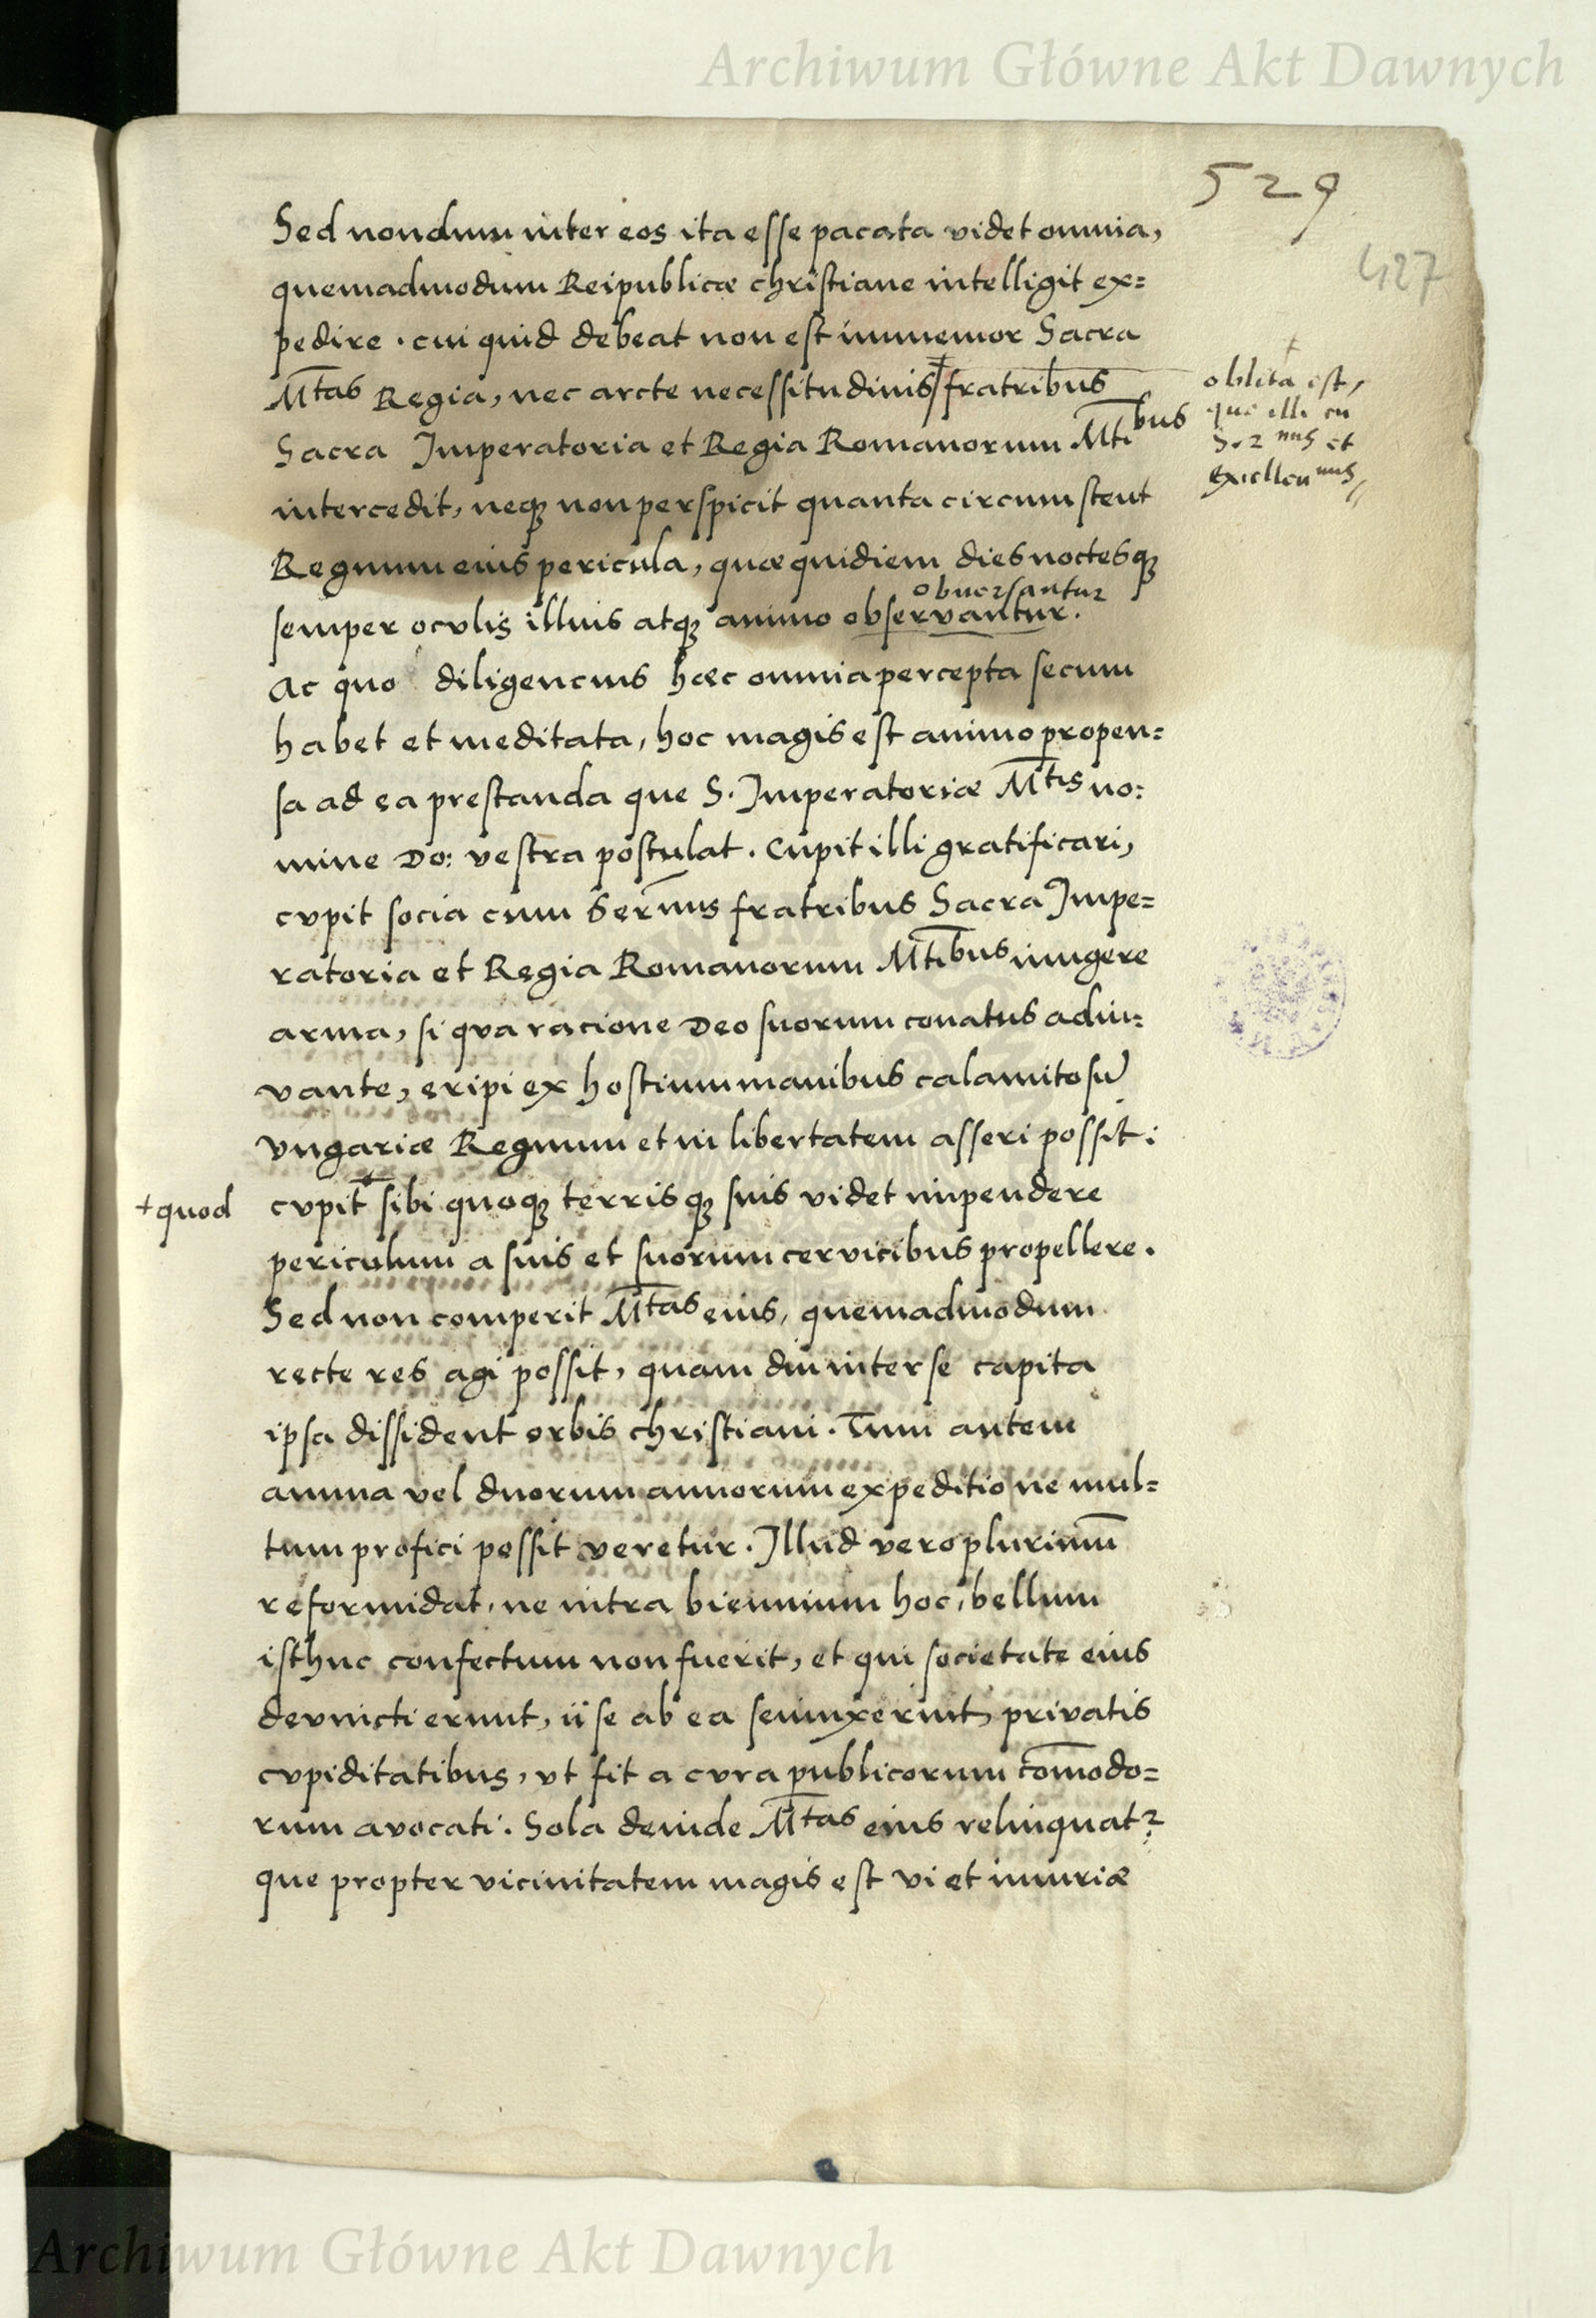 Archiwum Główne Akt Dawnych
529
427
Sed nondum inter eos ita esse pacata videt omnia,
quemadmodum Reipublicæ christiane intelligit ex=
pedire . cui quid debeat non est immemor Sacra
Mtas Regia, nec arcte necessitudinis fratribus
oblita est,
que illi cu
Serenus et
Excellenmis
Sacra Imperatoria et Regia Romanorum Mtibus
intercedit, neq; non perspicit quanta circumstent
Regnum eius pericula, quæ quidiem dies noctesq;
obversantur
semper ocvlis illius atq; animo observantur.
Ac quo diligencius hæc omnia percepta secum
habet et meditata, hoc magis est animo propen=
sa ad ea prestanda que S. Imperatoriæ Mtis no:
mine Do: vestra postulat . Cupit illi gratificari,
cvpit socia cum Sermis fratribus Sacra Impe=
ratoria et Regia Romanorum Mtibus iungere
arma, si qva racione Deo suorum conatus adiu=
vante, eripi ex hostium manibus calamitosũ
vngariæ Regnum et in libertatem asseri possit :
+quod
cvpit + sibi quoq; terrisq; suis videt impendere
periculum a suis et suorum cervicibus propellere .
Sed non comperit Mtas eius, quemadmodum
recte res agi possit, quam diu inter se capita
ipsa dissident orbis christiani . Tum autem
annua vel duorum annorum expeditione mul=
tum profici possit veretur . Illud vero plurimũ
reformidat, ne intra biennium hoc, bellum
isthuc confectum non fuerit, et qui societate eius
devincti erunt, ii se ab ea seiunxerint, privatis
cvpiditatibus, vt fit a cvra publicorum com̄odo=
rum avocati . Sola deinde Mtas eius relinquat2
que propter vicinitatem magis est vi et iniuriæ
Archiwum Główne Akt Dawnych